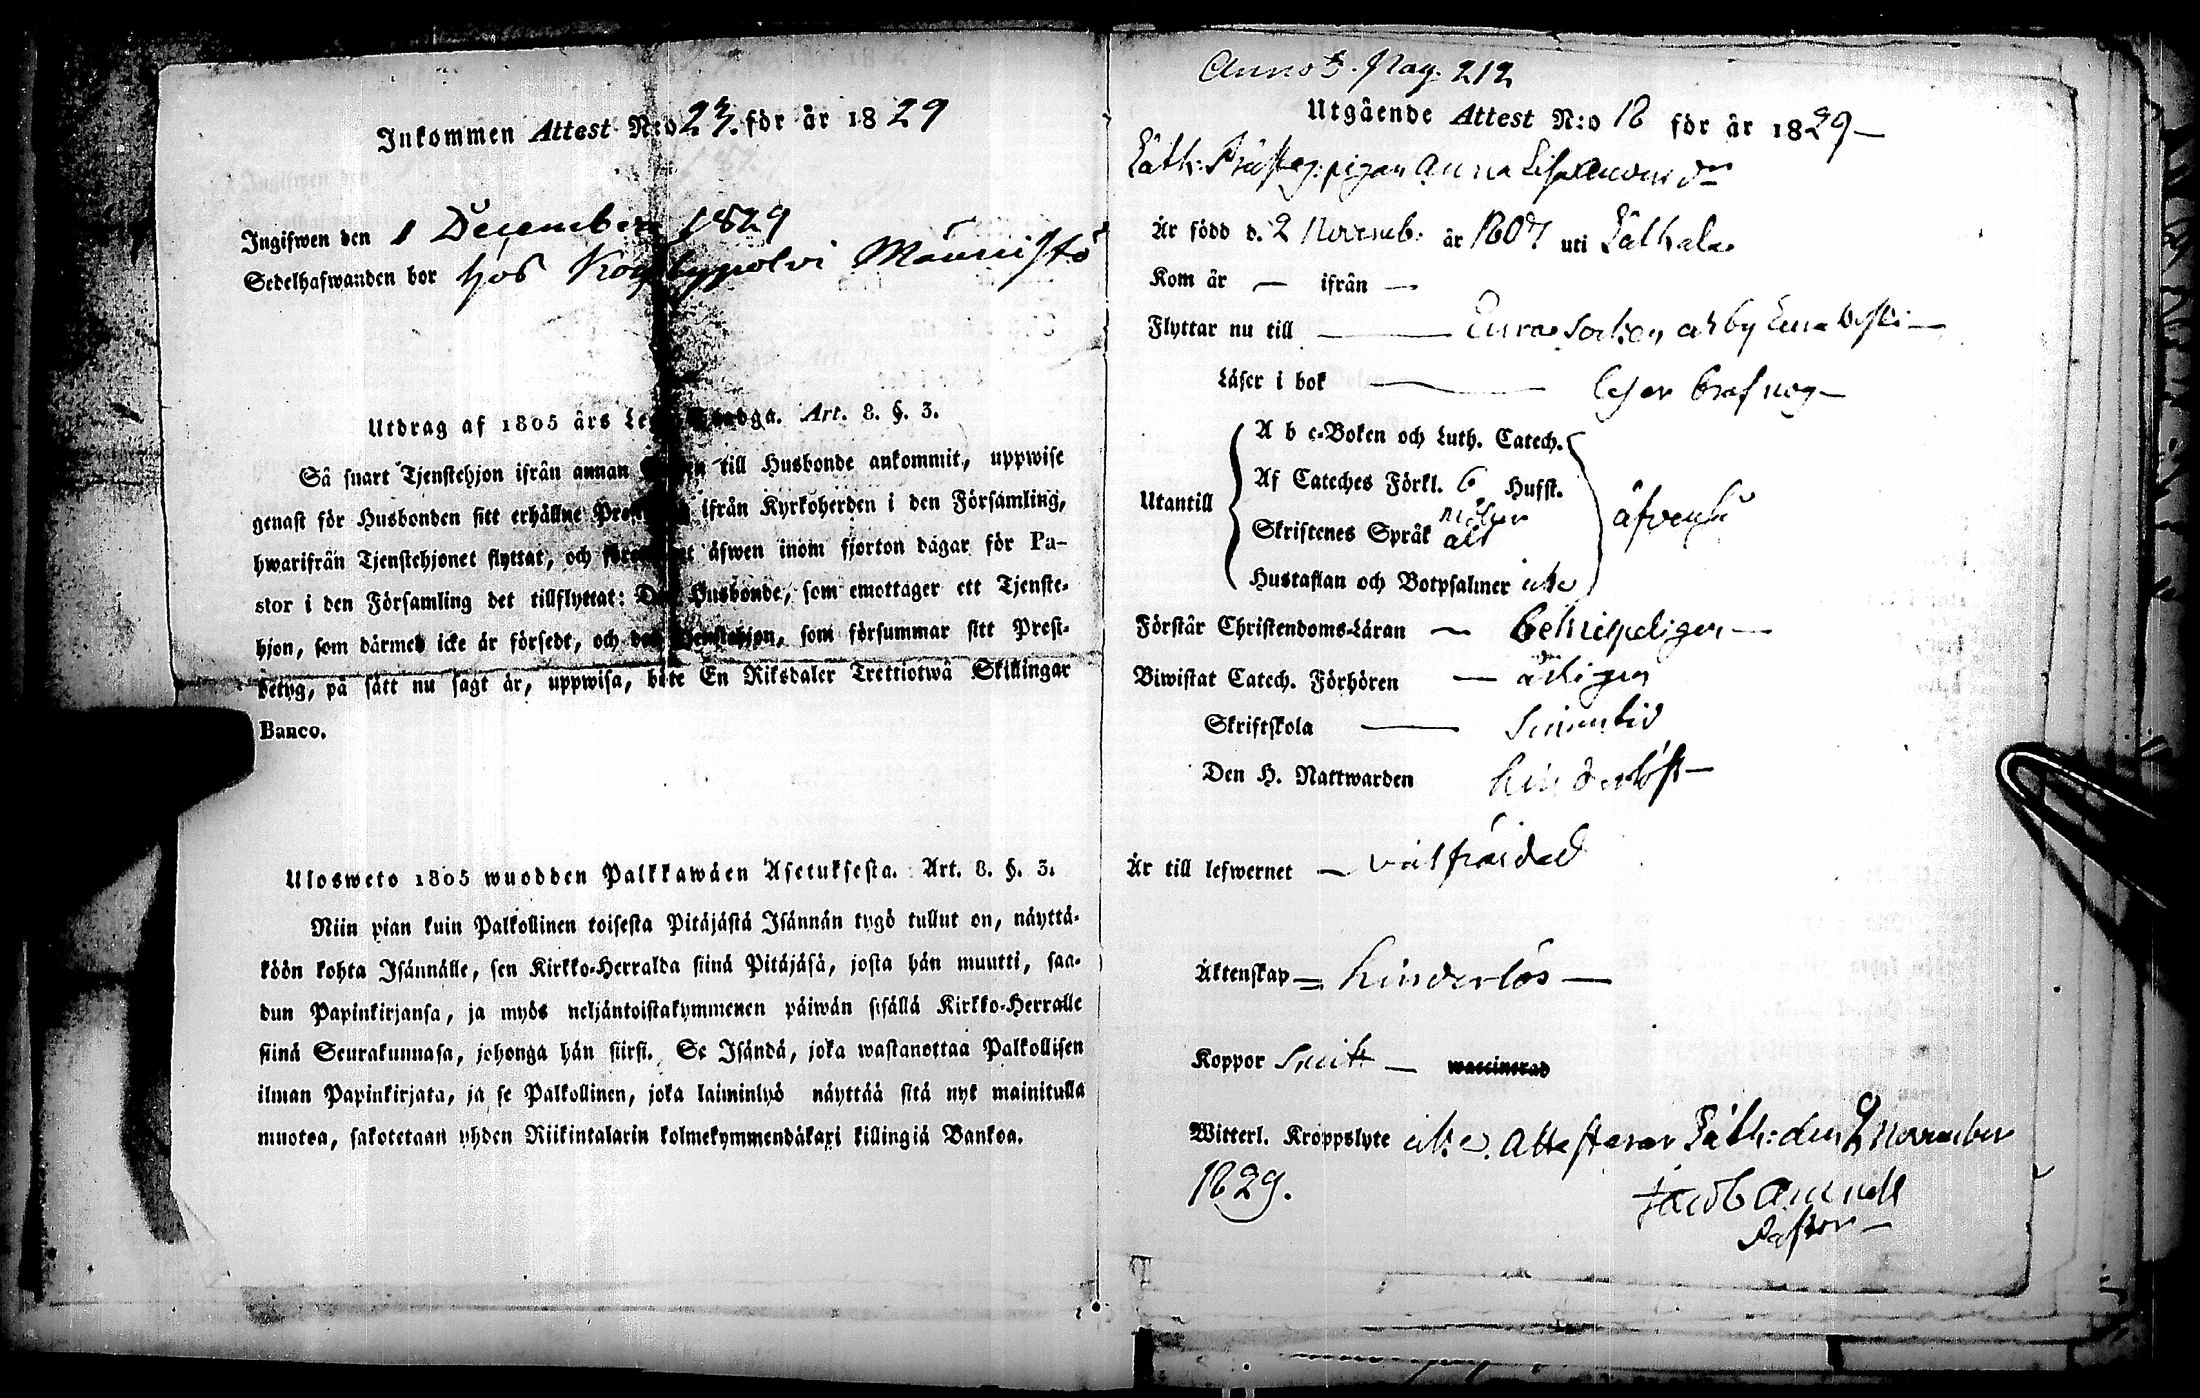 Inkommen Attest N:o 23. för år 1829
Ingifwen den 1 December 1829
Sedelhafwanden bor hos Männistö
Utdrag af 1805 års Stadga. Art. 8. §. 3.
Så snart Tjenstehjon ifrån annan till Husbonde ankommit, uppwise
genast för Husbonden sitt erhållne ifrån Kyrkoherden i den Församling,
hwarifrån Tjenstehjonet flyttat, och äfwen inom fjorton dagar för Pa-
stor i den Församling det tillflyttat: Den Husbonde, som emottager ett Tjenste-
hjon, som därmed icke är försedt, och det Tjenstehjon, som försummar sitt Prest-
betyg, på sätt nu sagt är, uppwisa, böte En Riksdaler Trettiotwå Skillingar
Banco.
Ulosweto 1805 wuodden Palkkawäen Asetuksesta. Art. 8. §. 3.
Niin pian kuin Palkollinen toisesta Pitäjästä Isännän tygö tullut on, näyttä-
köön kohta Isännälle, sen Kirkko-Herralda siinä Pitäjäsä, josta hän muutti, saa-
dun Papinkirjansa, ja myös neljäntoistakymmenen päiwän sisällä Kirkko-Herralle
siinä Seurakunnasa, johonga hän siirsi. Se Isändä, joka wastanottaa Palkollisen
ilman Papinkirjata, ja se Palkollinen, joka laiminlyö näyttää sitä nyt mainitulla
muotoa, sakotetaan yhden Riikintalarin kolmekymmendäkaxi killingiä Bankoa.
Anno 3. Pag. 212
Utgående Attest N:o 18 för år 1829
Läth: Prästeg: pigan Anna Lisa Anders dr
Är född d. 2 Novemb: år 1807 uti Låthala
Kom år — ifrån —
Flyttar nu till — Eura Socken och by —
Läser i bok — läser braf nog —
A b c-Boken och Luth. Catech.
Af Cateches Förkl. 6 Hufst.
Utantill
Skriftenes Språk
Hustaflan och Botpsalmer icke
Förstår Christendoms-Läran — behjelpligen —
Biwistat Catech. Förhören — årligen
Skriftskola —
Den H. Nattwarden hinderlöst —
Är till lefwernet — wälfräjdad
Äktenskap = hinderlös —
Koppor haft — waccinerad
Witterl. Kroppslyte icke. Attesterar Låth: den 2 November
1829.
Jacob
Pastor —